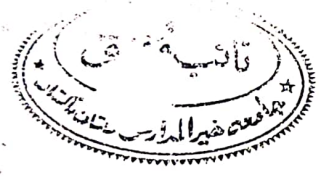 نائب مفتی
جامعہ خیر المدارس ملتان پاکستان